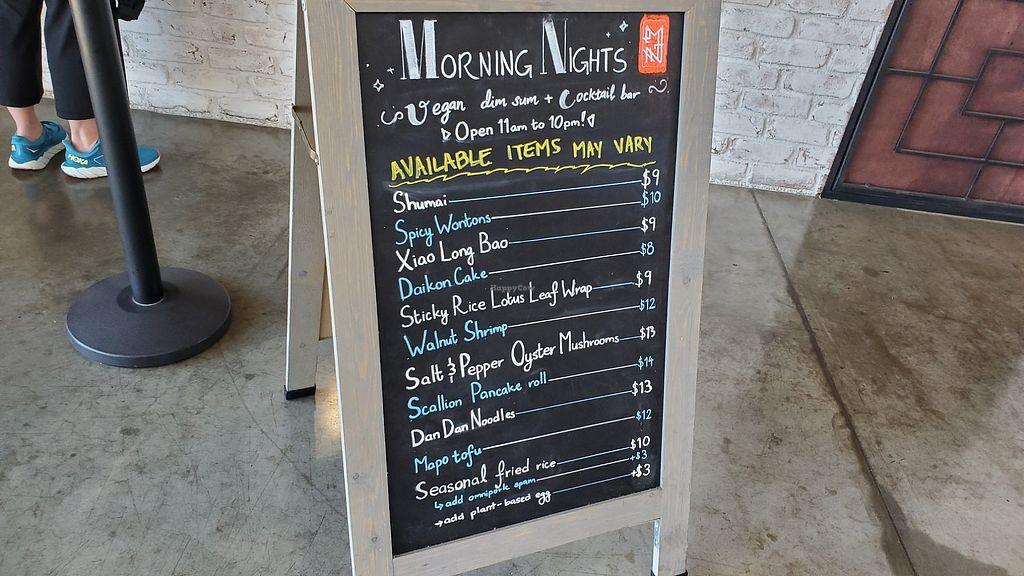 MORNING NIGHTS
Vegan dim sum + Cocktail bar
Open 11am to 10pm!
AVAILABLE ITEMS MAY VARY
Shumai $9
Spicy Wontons $10
Xiao Long Bao $9
Daikon Cake $8
Sticky Rice Lotus Leaf Wrap $9
Walnut Shrimp $12
Salt & Pepper Oyster Mushrooms $13
Scallion Pancake roll $14
Dan Dan Noodles $13
Mapo tofu $12
Seasonal fried rice $10
↳ add omnipork spam +$3
→ add plant-based egg +$3
HOKA
HappyCow